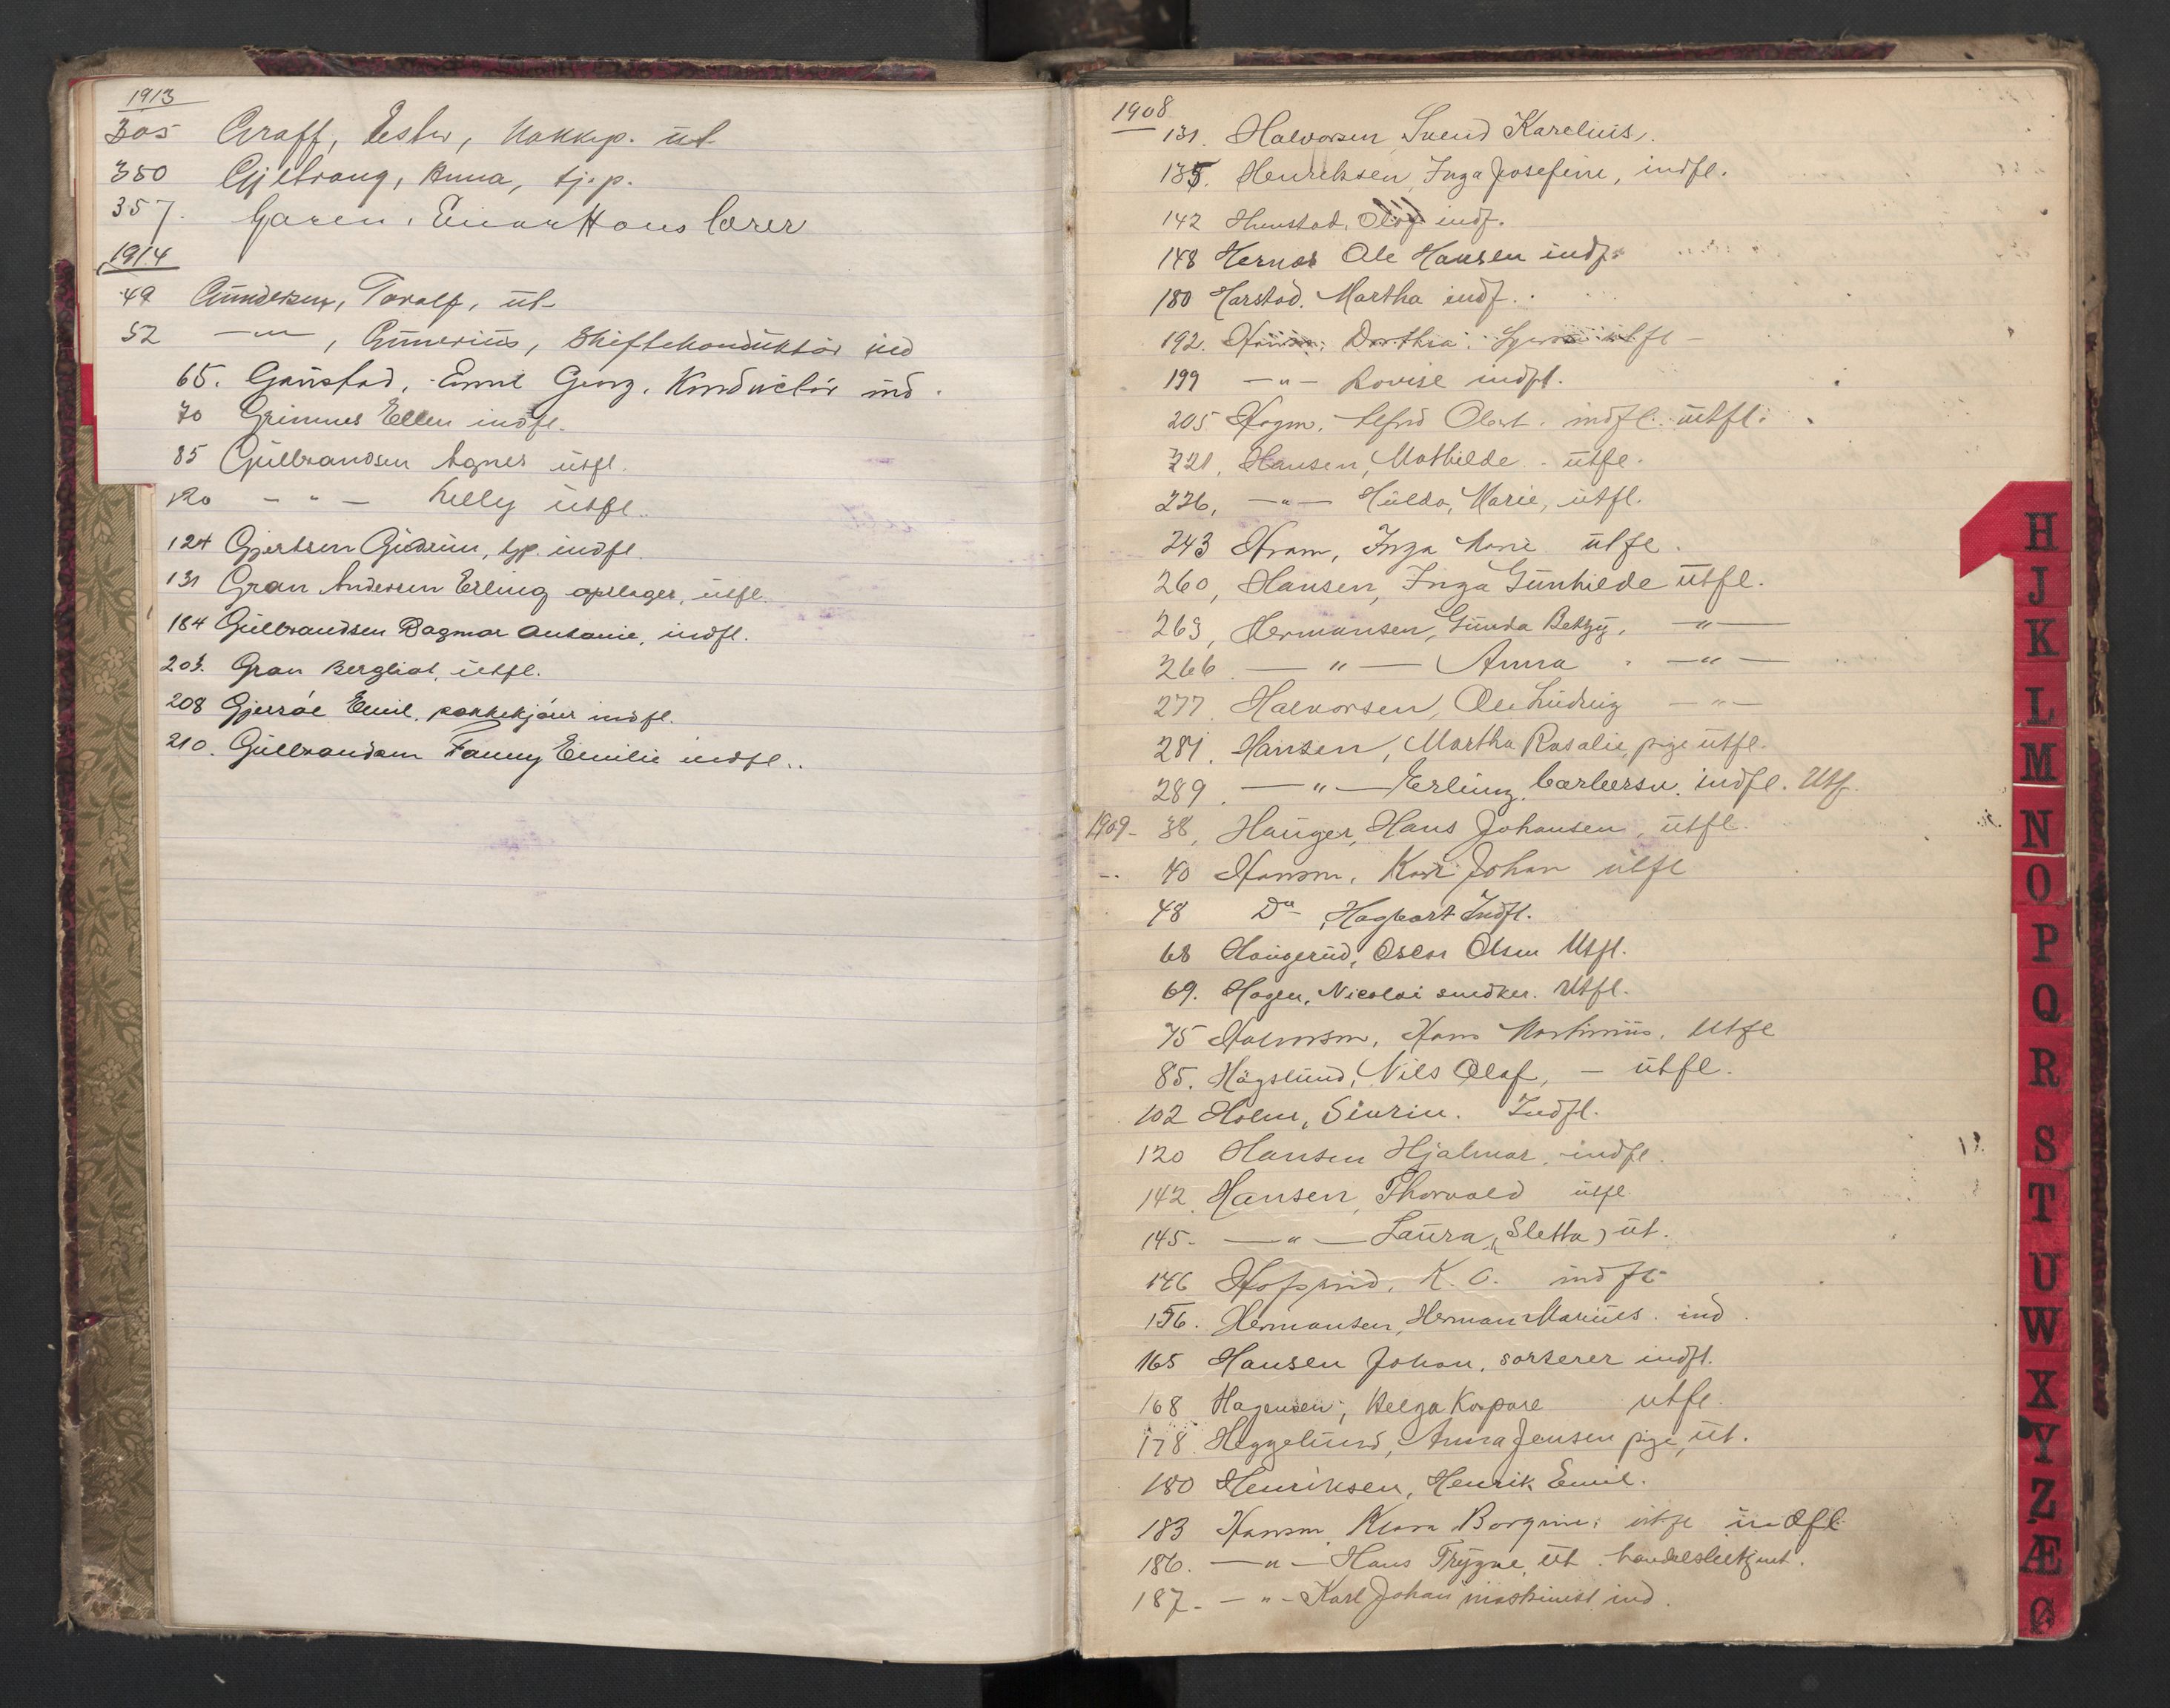 1913
305 Graff, Ester, Kokkep. ut
350 Gjelvang, Anna, tj.p.
357. Garen, Einar Hans lærer
1914
49 Gundersen, Toralf, ut
52 —"—, Gunerius, Skiftekonduktör ind
65. Gaustad, Emil Georg. Konduktör ind.
70 Grimnes Ellen indfl.
85 Gulbrandsen Agnes utfl.
120 - " - Lilly utfl.
124 Gjertsen Gudrun, tjp. indfl.
131 Gran Andersen Erling opslager, utfl.
184 Gulbrandsen Dagmar Antonie, indfl.
203. Gran Bergliot, utfl.
208 Gjersöe Emil, indfl.
210. Gulbrandsen Fanny Emilie indfl..
1908
131. Halvorsen, Svend Karelius.
135. Henriksen, Inga Josefine, indfl.
142 Olaf indf.
148 Hernes Ole Hansen indf.
180 Harstad. Martha indf.
192. Hansen, Dorthea. utfl -
199 -"- Lovise indfl.
205 Hagen, Alfred Olert. indfl. utfl.
221, Hansen, Mathilde. utfl.
226, -"- Hulda, Marie, utfl.
243 Hram, Inga Marie utfl.
260, Hansen, Inga Gunhilde utfl.
263, Hermansen, Gunda Betzy, -"-
266. -"- Anna. -"-
277. Halvorsen, Ole Ludvig -"-
281. Hansen, Martha Rosalie, pige utfl.
289. -"- Erling, indfl. Utf.
1909- 38, Hauger, Hans Johansen, utfl.
-.. 40 Hansen, Karl Johan utfl
48 Do, Hagbart Indfl.
68 Haugerud, Oscar Olsen Utfl.
69. Hagen, Nicolai snedker. Utfl.
75 Halvorsen, Hans Martinius, Utfl
85. Hägslund, Nils Olaf, - utfl.
102 Holm, Sivrin. Indfl.
120 Hansen Hjalmar, indfl.
142. Hansen, Thorvald utfl.
145- -"- Laura, (Sletta) ut.
146 K. O. indfl
156. Hermansen, Herman Marius. ind.
165 Hansen Johan, sorterer indfl.
168 Hagensen, Helga Kaspare utfl.
178. Heggelund, Anna Jensen pige, ut.
180 Henriksen, Henrik Emil.
183 Hansen, Klara Borgine; utfl indfl
186. -"- Hans Trygve, ut. handelsbetjent.
187. - " - Karl Johan maskinist ind.
H
J
K
L
M
N
O
P
Q
R
S
T
U
W
X
Y
Z
Æ
Ø